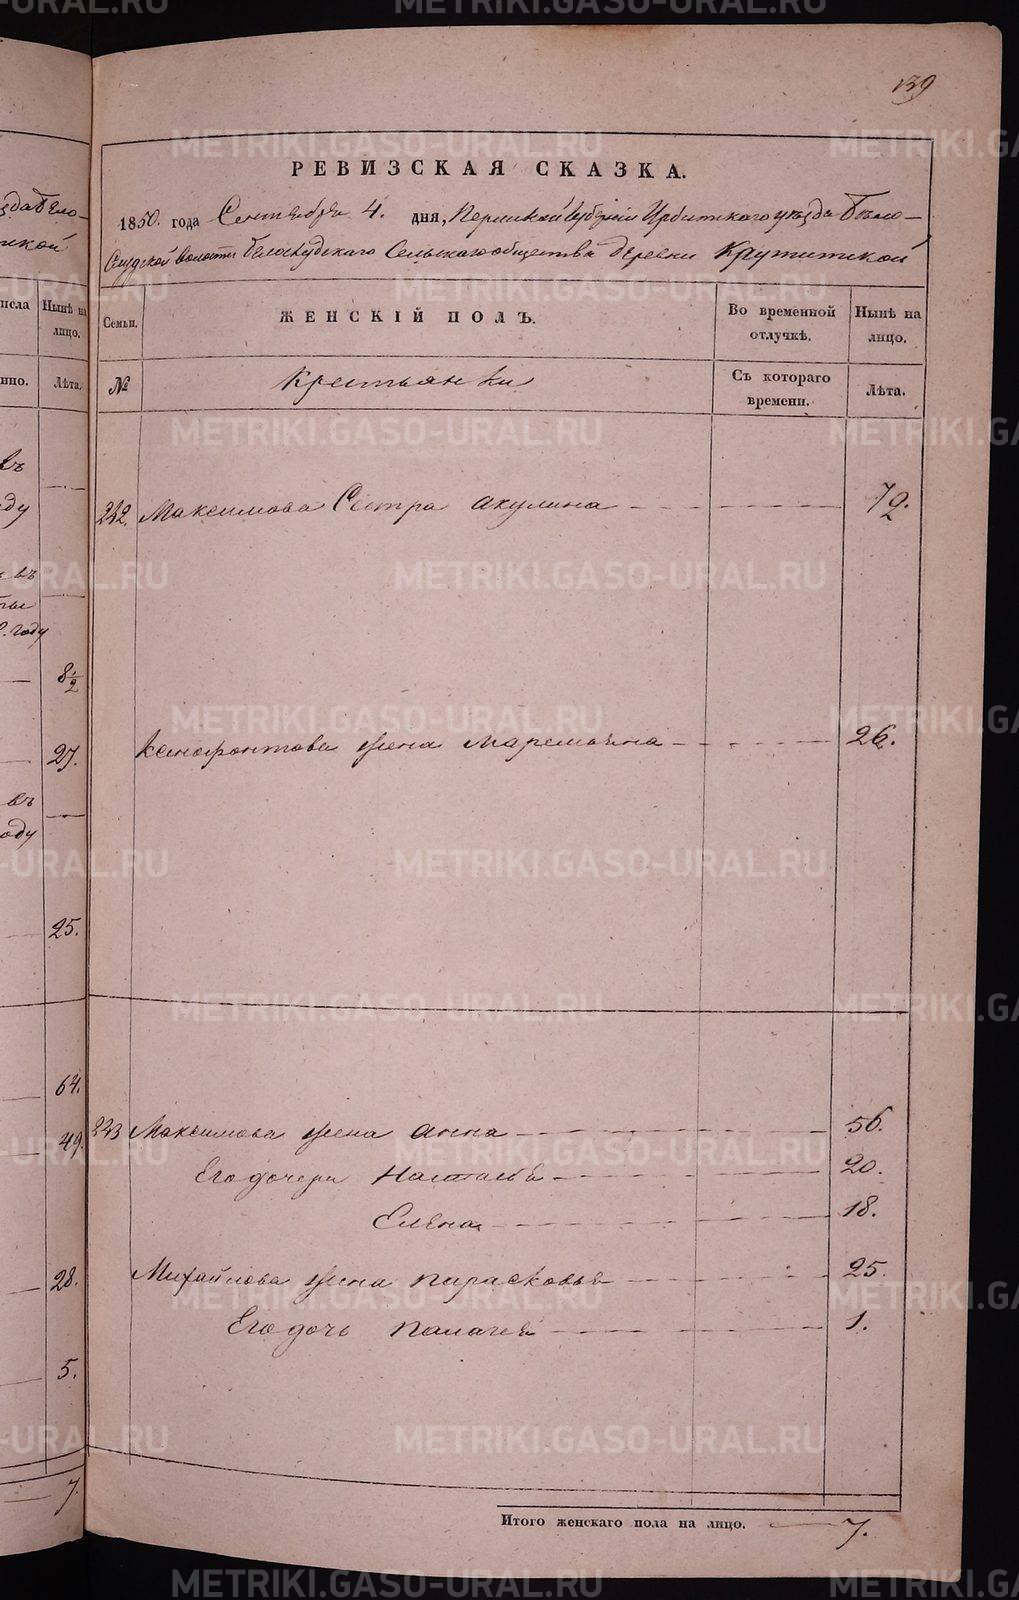 139
РЕВИЗСКАЯ СКАЗКА.
1850. года Сентября 4. дня, Пермской Губернии Ирбитскаго уѣзда Бѣло-
слудской волости Белослудскаго Сельскаго общества деревни Крутитской
Семьи. ЖЕНСКІЙ ПОЛЪ. Во временной отлучкѣ. Нынѣ на лицо.
№ Крестьянки Съ котораго времени. Лѣта.
242. Максимова Сестра Акулина 72.
Ксенофонтова жена Маремьяна 26.
243 Максимова жена Анна 56.
Его дочери Настасья 20.
Елена 18.
Михайлова жена Парасковья 25.
Его дочь Палагея 1.
Итого женскаго пола на лицо. 7.
Нынѣ на лицо.
Лѣта.
въ
8½
27.
въ
оду
25.
64.
49.
28.
5.
7.
METRIKI.GASO-URAL.RU